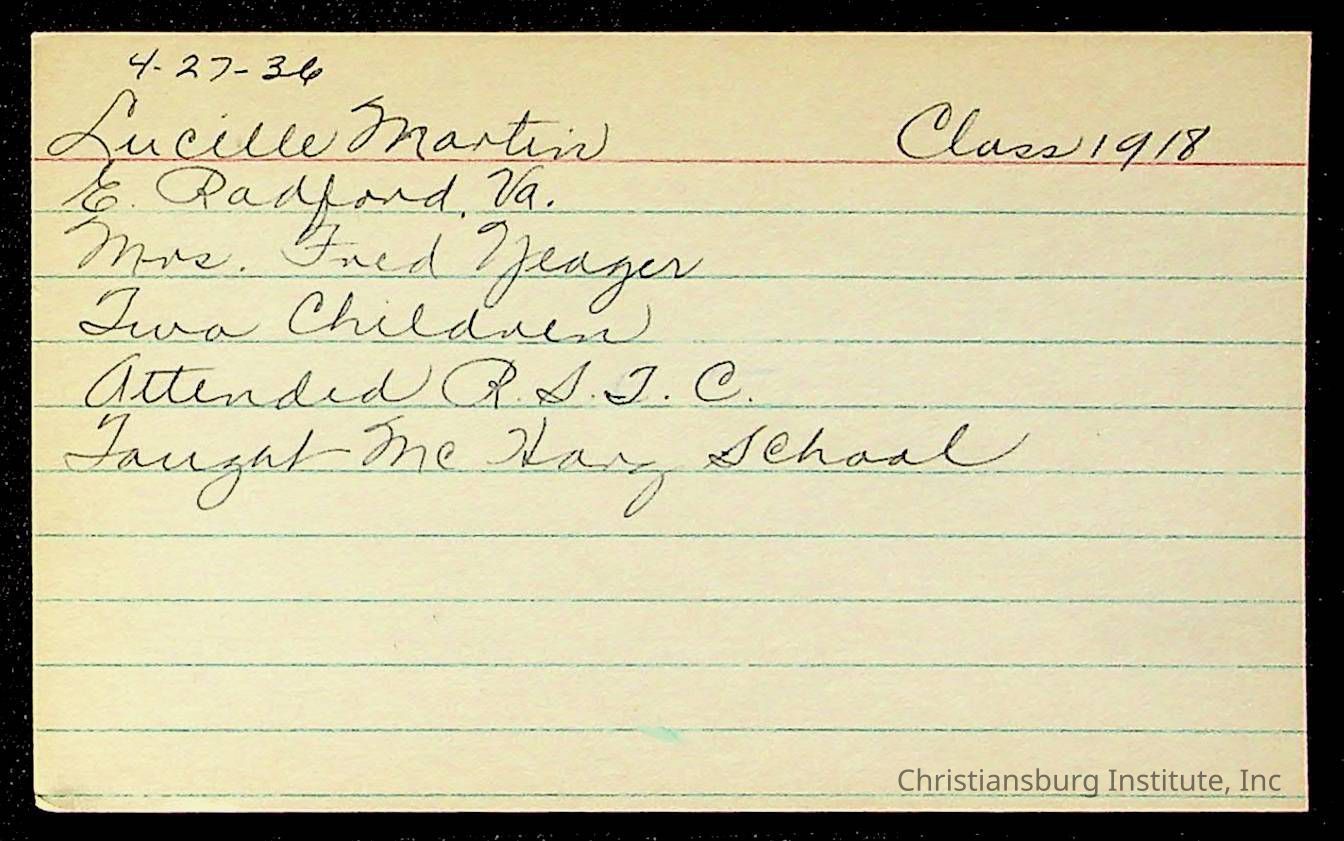 4-27-36
Lucille Martin Class 1918
E. Radford, Va.
Mrs. Fred Yeager
Two Children
Attended R. S. T. C.
Taught Mc Harg School
Christiansburg Institute, Inc